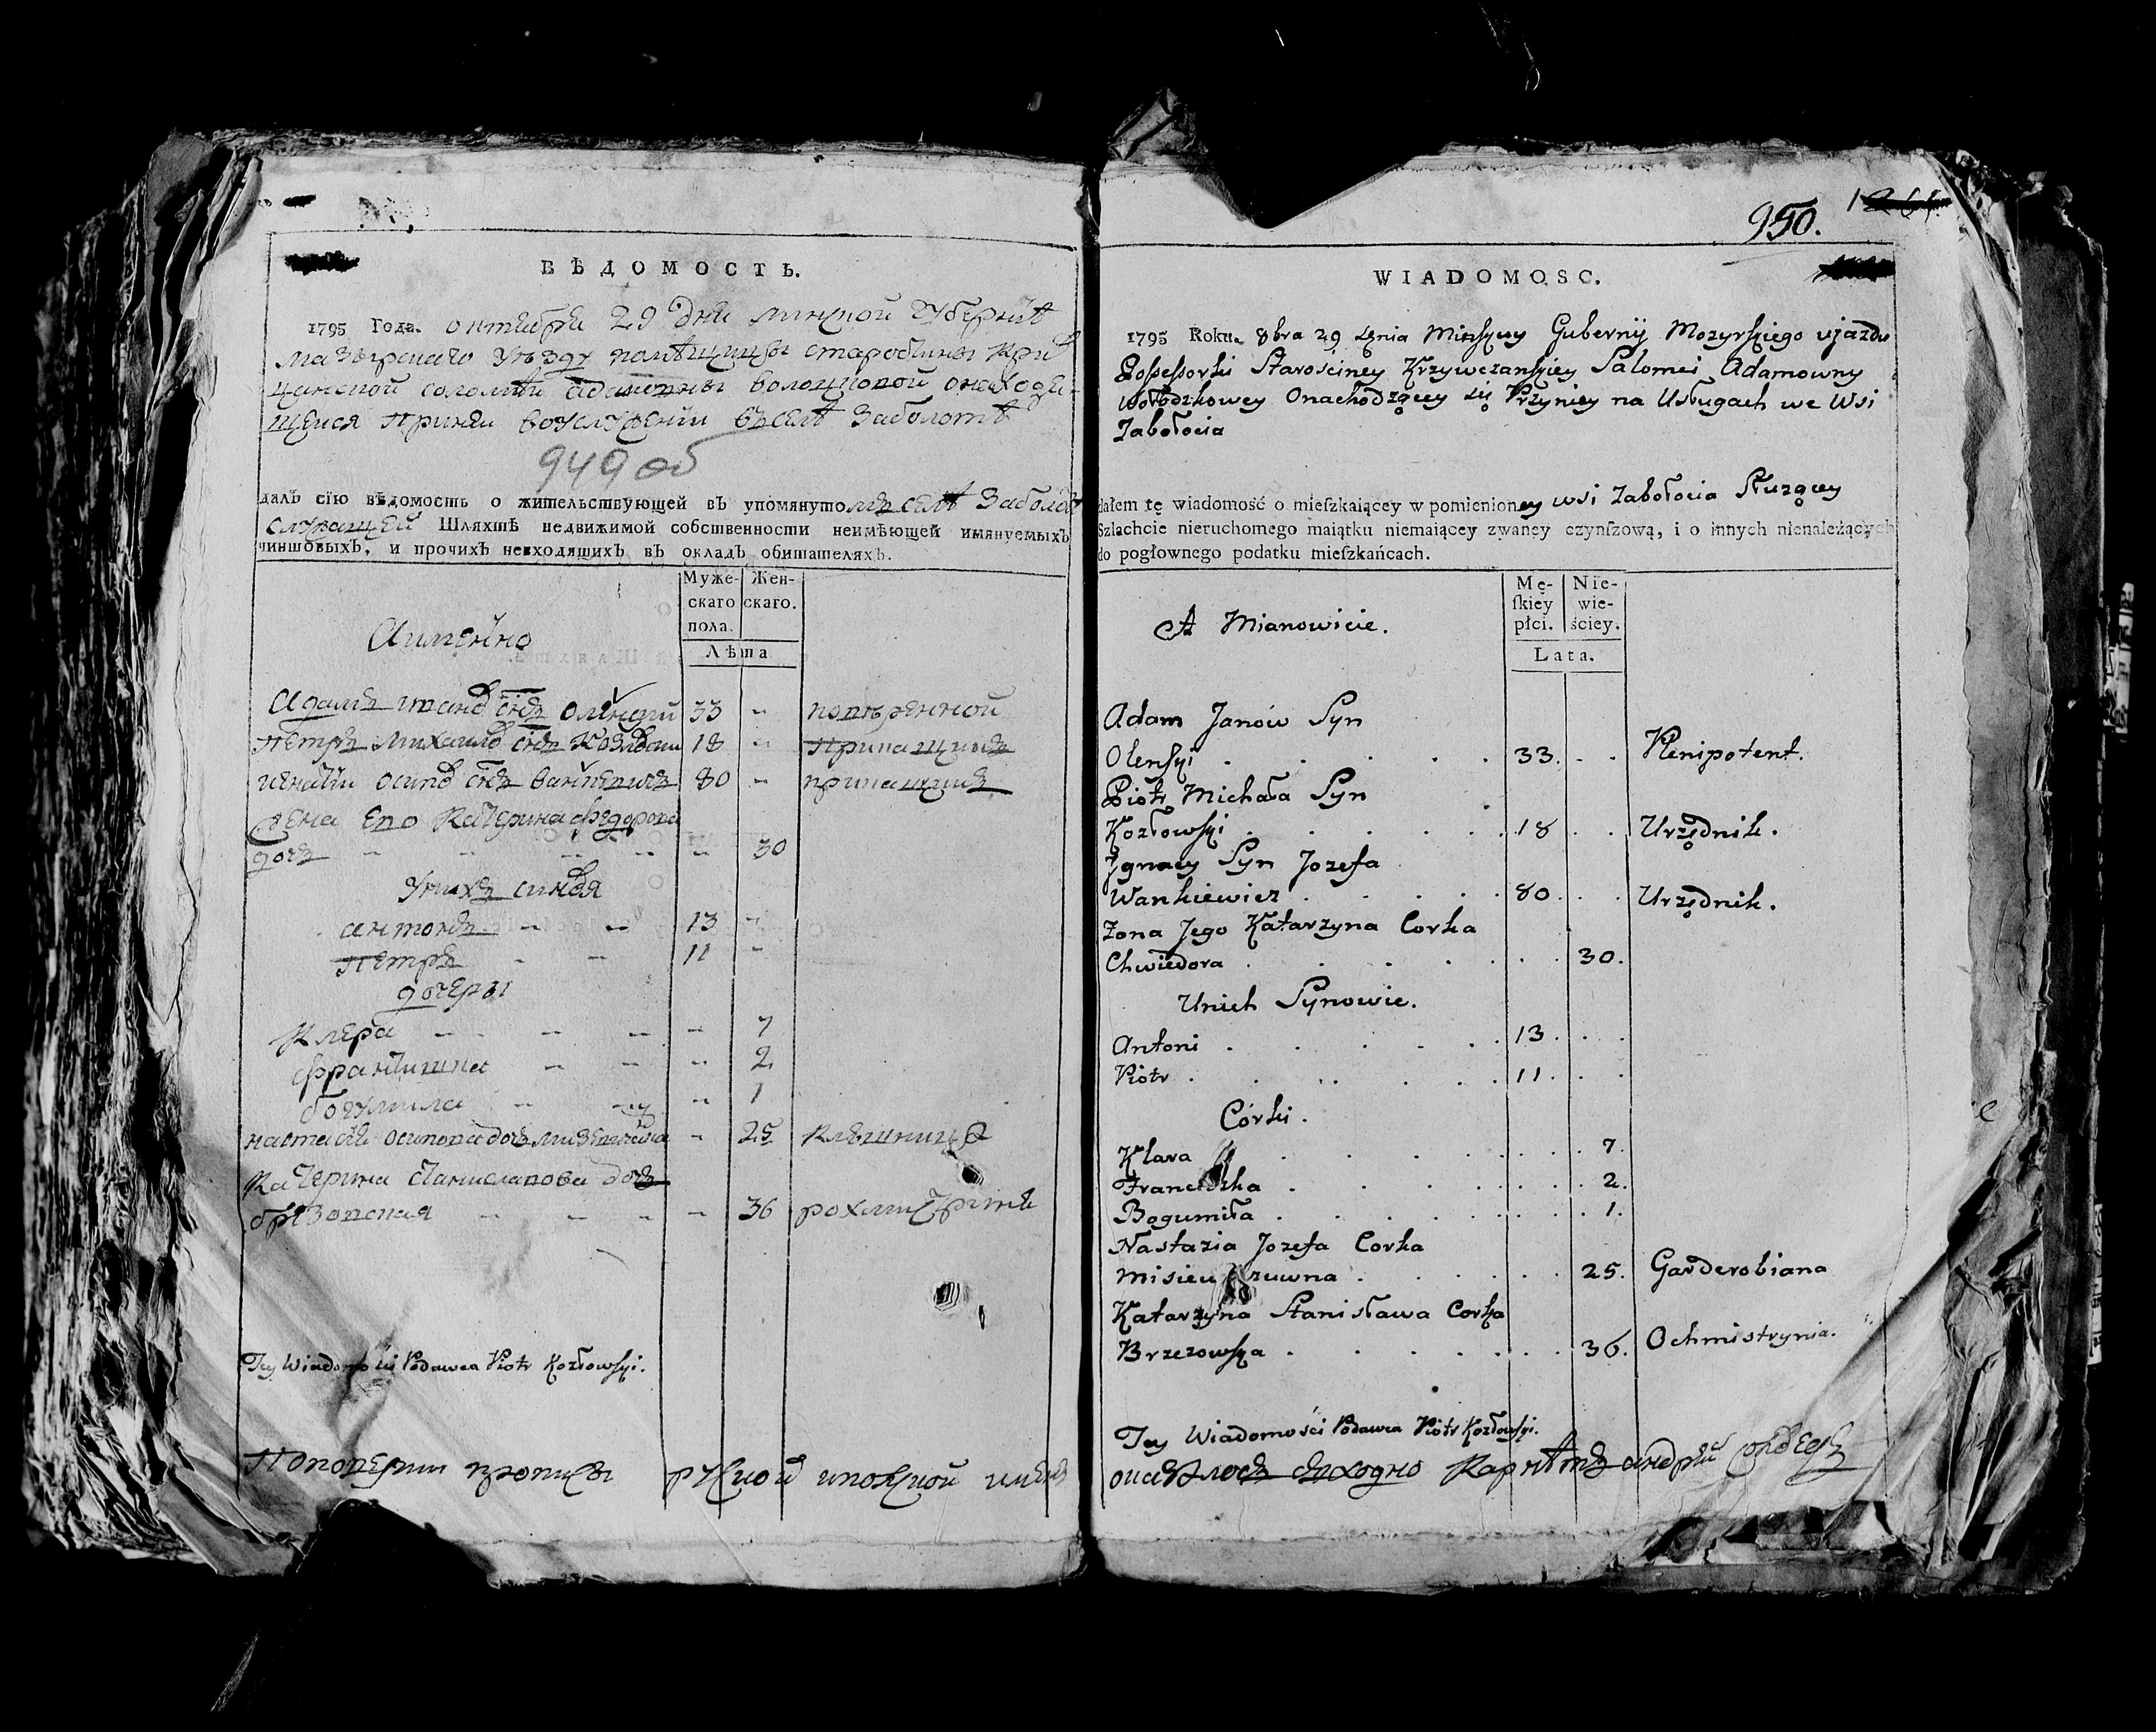 ВѢДОМОСТЬ.
1795 Года. октября 29 дня минской Губерніѣ
мазырскаго уѣзду помѣщицы старостины Кри
чанской соломѣи адамовны волоцковой онаходя
щейся при ней воуслуженіи въ селѣ Заболотѣ
949 об
далъ сїю вѣдомость о жительствующей въ упомянутомъ селѣ Заболотѣ
служащей Шляхтѣ недвижимой собственности неимѣющей имянуемыхъ
чиншовыхъ, и прочихъ невходящихъ въ окладъ обитателяхъ.
Муже- Жен-
скаго скаго.
пола.
Лѣта
Аименно
Адамъ ивановъ снъ Оленский 33 - повѣренной
Петръ михаиловъ снъ Козловски 18 - прикащикъ
игнатій осиповъ снъ ванкевичъ 80 - прикащикъ
жена Его Катерина федорова
дочь - - - - - 30
Унихъ синовя
антонъ - - 13 -
Петръ - - 11 -
дочеры
Клара - - - - 7
францишка - - - 2
богумила - - - 1
настасия осипова дочь - 25 ключница
Катерина Станиславова дочь
бржзовская - - - - - 36
Tey Wiadomości Podawca Piotr Kozłowski.
950.
WIADOMOSC.
1795 Roku. 8bra 29 dnia Minskiey Gubernij Mozyrskiego ujazdu
Possessorki Starościney Krzywczanskiey Salomei Adamowny
Wołodzkowey Onachodzącey się Przyniey na Usługach we Wsi
Zabołocia
dałem tę wiadomość o mieſzkaiącey w pomienioney wsi Zabołocia Służącey
Szlachcie nieruchomego maiątku niemaiącey zwaney czynſzową, i o innych nienależących
do pogłownego podatku mieſzkańcach.
Mę- Nie-
ſkiey wie-
płci. ściey.
Lata.
A Mianowicie.
Adam Janów Syn
Olenski . . . . . 33. . . Plenipotent.
Piotr Michała Syn
Kozłowski . . . . . . 18 . . Urzędnik.
Ignacy Syn Jozefa
Wankiewicz . . . . 80 . . . Urzędnik.
Zona Jego Katarzyna Corka
Chwiedora . . . . . . . 30.
Unich Synowie.
Antoni . . . . . . 13 . . .
Piotr . . . . . . 11 . . .
Córki.
Klara . . . . . . . 7.
Franciszka . . . . . . . 2.
Bogumiła . . . . . . . 1.
Nastazia Jozefa Corka
. . . . . . 25. Garderobiana
Katarzyna Stanisława Corka
Brzezowska . . . . . . . 36. Ochmistrynia.
Tey Wiadomości Podawca Piotr Kozłowski.